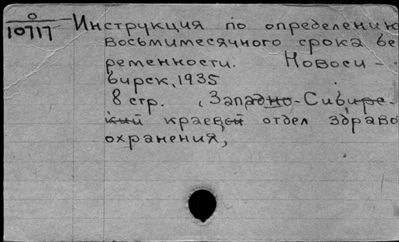 0
10717
Инструкция по определению
восьмимесячного срока бе
ременности. Новоси-
бирск, 1935
8 стр. (Западно-Сибирс-
кий краевой отдел здраво
охранения,